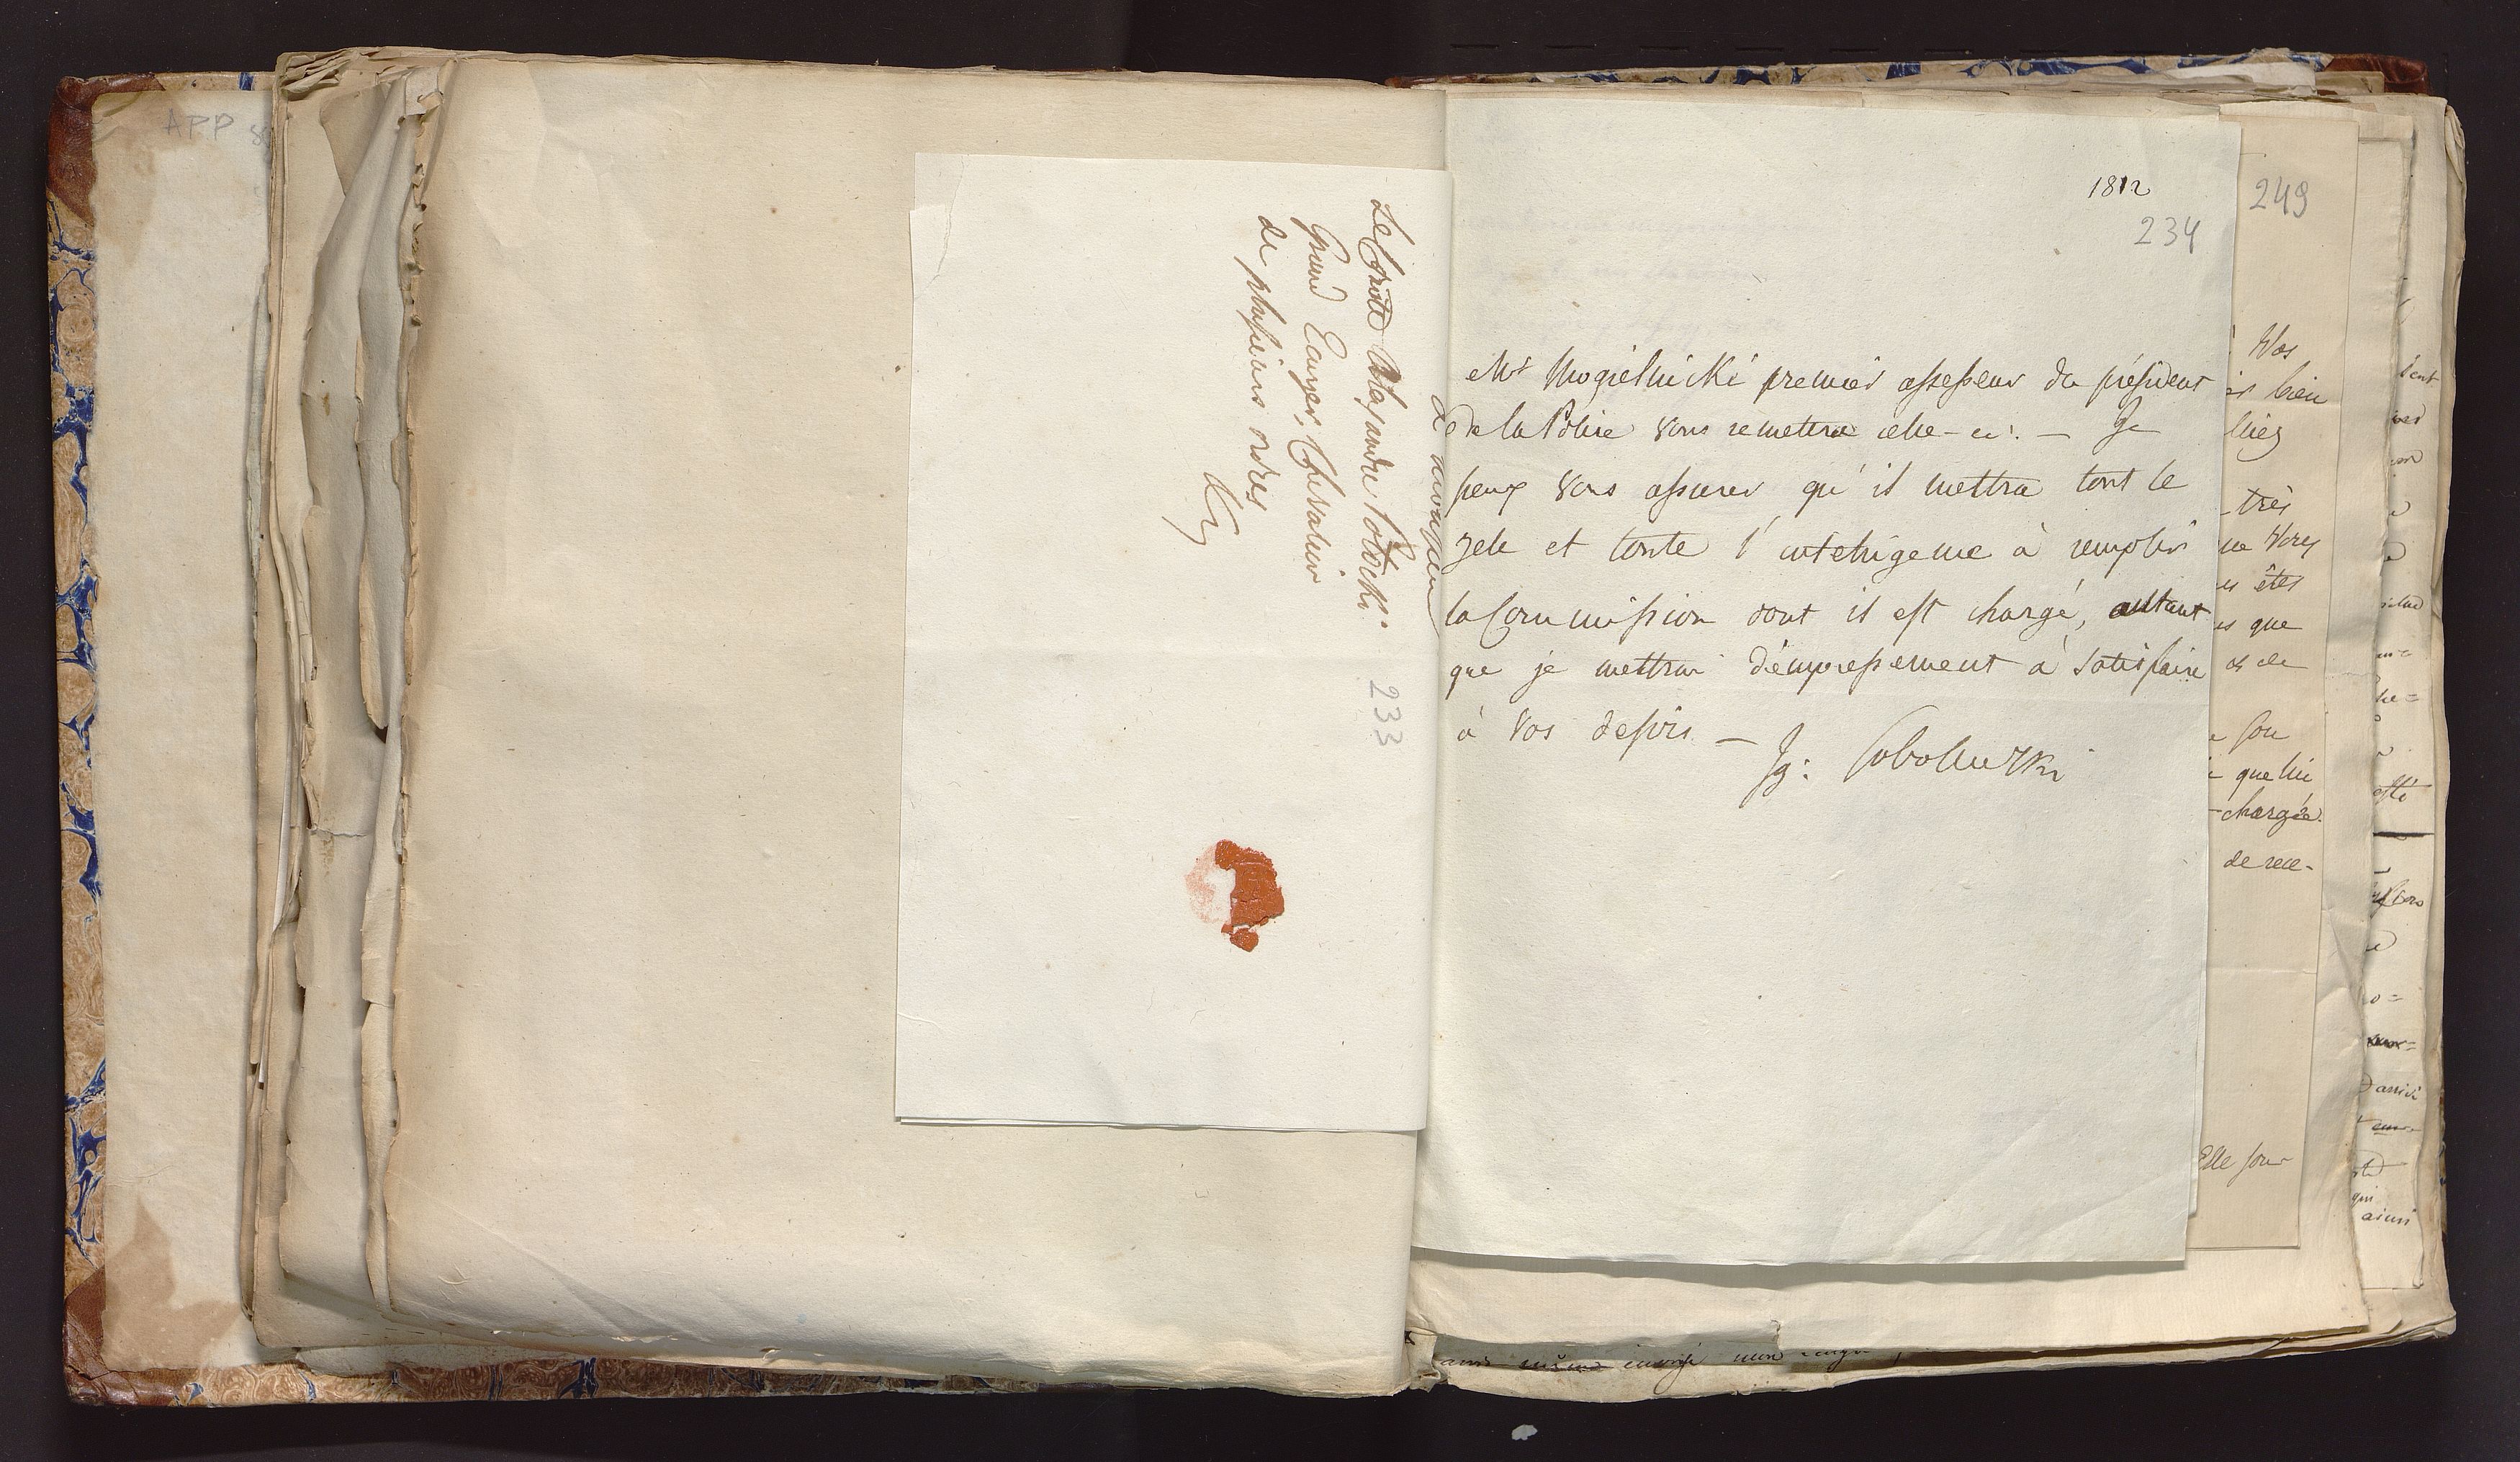 APP
à Monsieur
Le Comte Alexandre Potocki.
Grand Ecuyer, Chevalier
de plusieurs ordres
233
1812
234
Mr Mogielnicki premier assesseur du président
de la Police vous remettra celle-ci. — Je
peux vous assurer qu'il mettra tout le
zele et toute l'intelligence à remplir
la Commission dont il est chargé, autant
que je mettrai d'empressement à satisfaire
à vos desirs —
Ig: Sobolewski
249
Vos
bien
très
êtes
que
de
son
que lui
chargée.
de rece-
Elle sous
ainsi